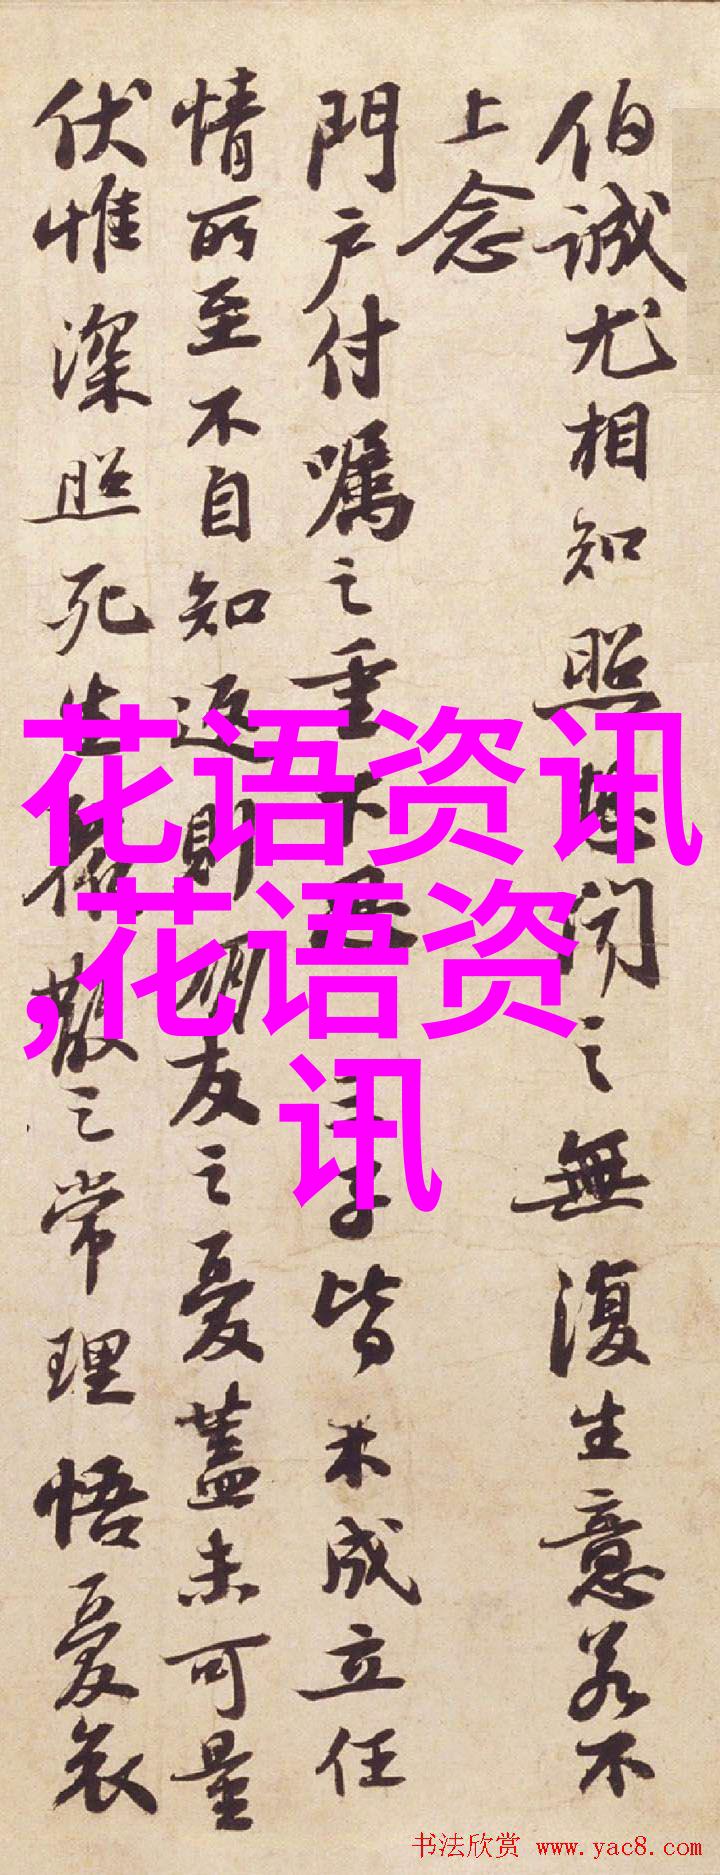 伯誠尤相知照想聞之無復生意若不
上念
門户付囑之重下思三子皆未成立任
情所至不自知返則朋友之憂蓋未可量
伏惟深照死生聚散之常理悟憂哀
花语资讯
,花语资
讯
书法欣赏 www.yac8.com